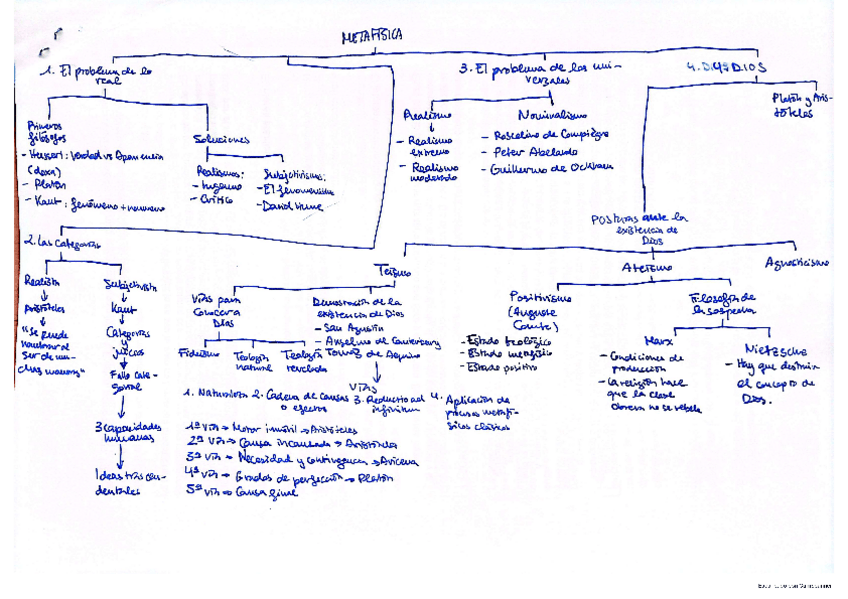 METAFÍSICA
1. El problema de lo
real
3. El problema de los uni-
versales
4. DIOS
Platón y Aris-
tóteles
Primeros
filósofos
- Husserl: Verdad vs Apariencia
(doxa)
- Platón
- Kant: fenómeno + noumeno
Soluciones
Realismos:
- Ingenuo
- Crítico
Subjetivismo:
- El fenomenismo
- David Hume
Realismo
- Realismo
extremo
- Realismo
moderado
Nominalismo
- Roscelino de Compiègne
- Peter Abelardo
- Guillermo de Ockham
Posturas ante la
existencia de
Dios
2. Las Categorías
Realista
Aristóteles
"Se puede
nombrar al
ser de mu-
chas maneras"
Subjetivista
Kant
Categorías
y
juicios
3 capacidades
humanas
Ideas trascen-
dentales
Teísmo
Vías para
conocer a
Dios
Fideísmo
Teología
natural
Teología
revelada
Demostración de la
existencia de Dios
- San Agustín
- Anselmo de Canterbury
- Tomás de Aquino
VÍAS
1. Naturaleza 2. Cadena de causas 3. Reductio ad 4. Aplicación de
o efectos infinitum procesos metafí-
sicos clásicos
1ª vía → Motor inmóvil → Aristóteles
2ª vía → Causa incausada → Aristóteles
3ª vía → Necesidad y contingencia → Avicena
4ª vía → Grados de perfección → Platón
5ª vía → Causa final
Ateísmo
Agnosticismo
Positivismo
(Auguste
Comte)
- Estado teológico
- Estado metafísico
- Estado positivo
Filosofía de
la sospecha
Marx
- Condiciones de
producción
- La religión hace
que la clase
obrera no se rebele
Nietzsche
- Hay que destruir
el concepto de
Dios.